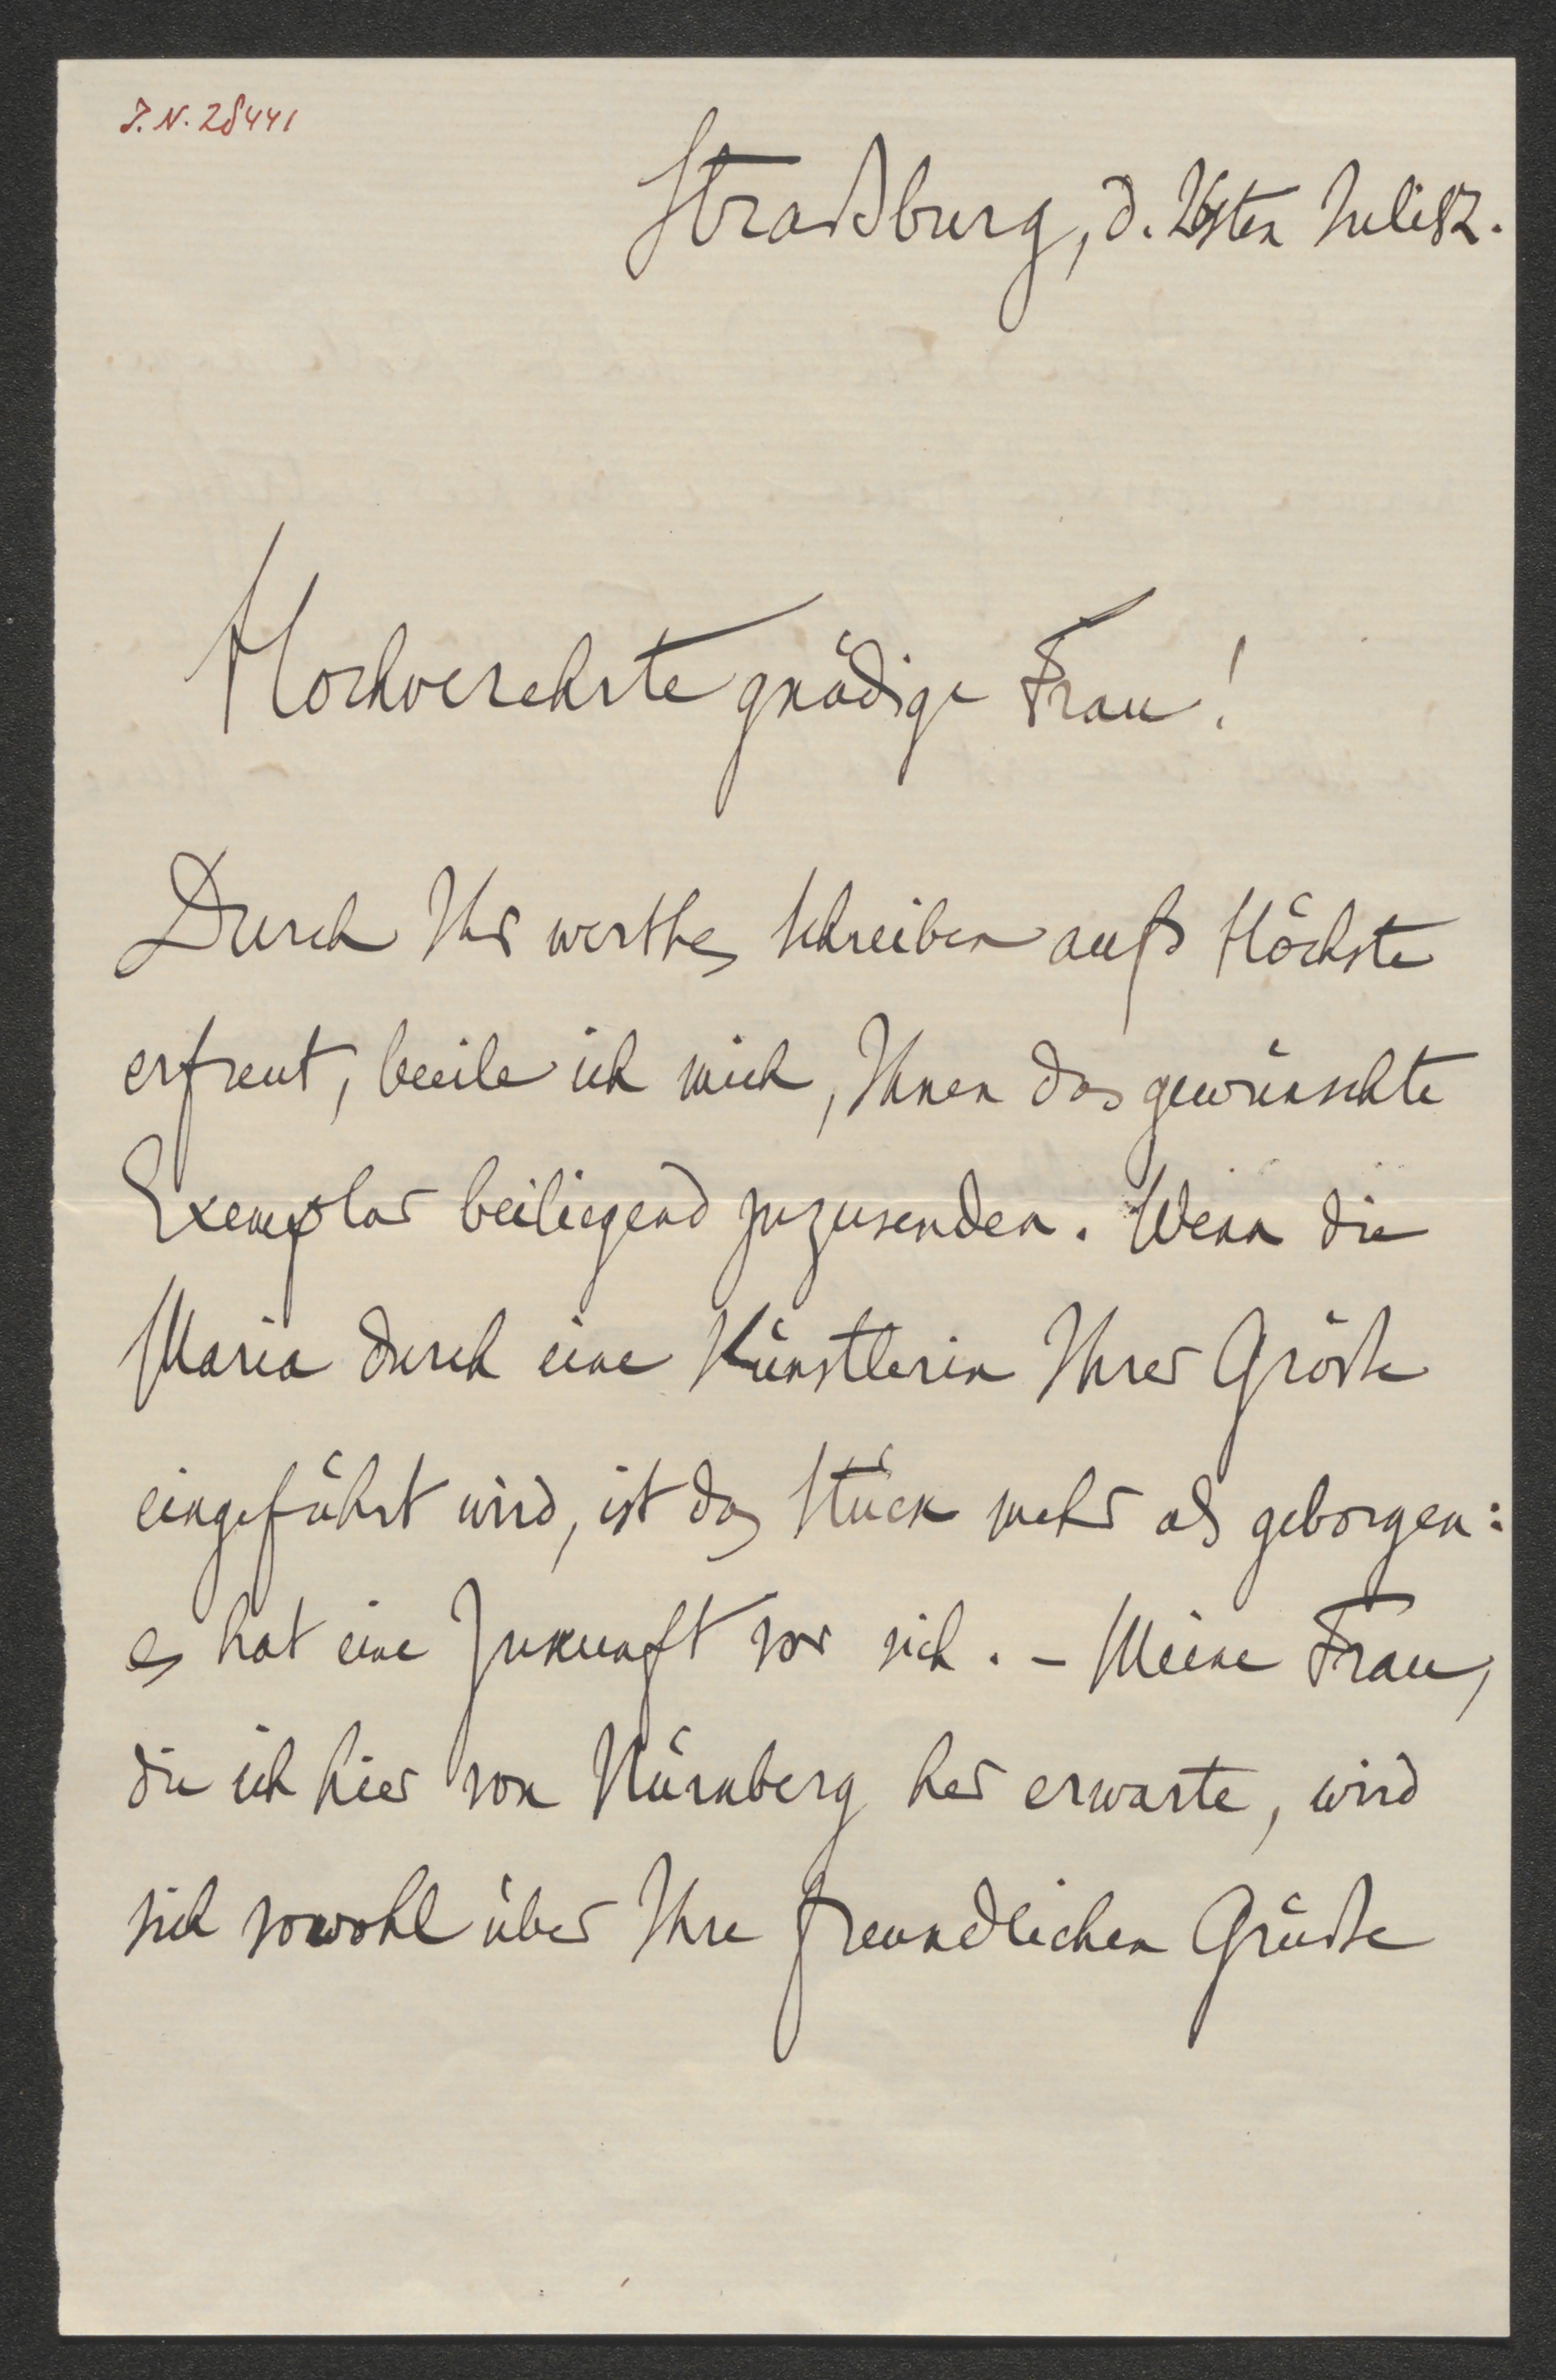 J. N. 28441
Straßburg, d. 26sten Juli 82.
Hochverehrte gnädige Frau!
Durch Ihr werthes Schreiben aufs Höchste
erfreut, beeile ich mich, Ihnen das gewünschte
Exemplar beiliegend zuzusenden. Wenn die
Maria durch eine Künstlerin Ihrer Größe
eingeführt wird, ist das Stück mehr als geborgen:
es hat eine Zukunft vor sich. – Meine Frau,
die ich hier von Nürnberg her erwarte, wird
sich sowohl über Ihre freundlichen Grüße